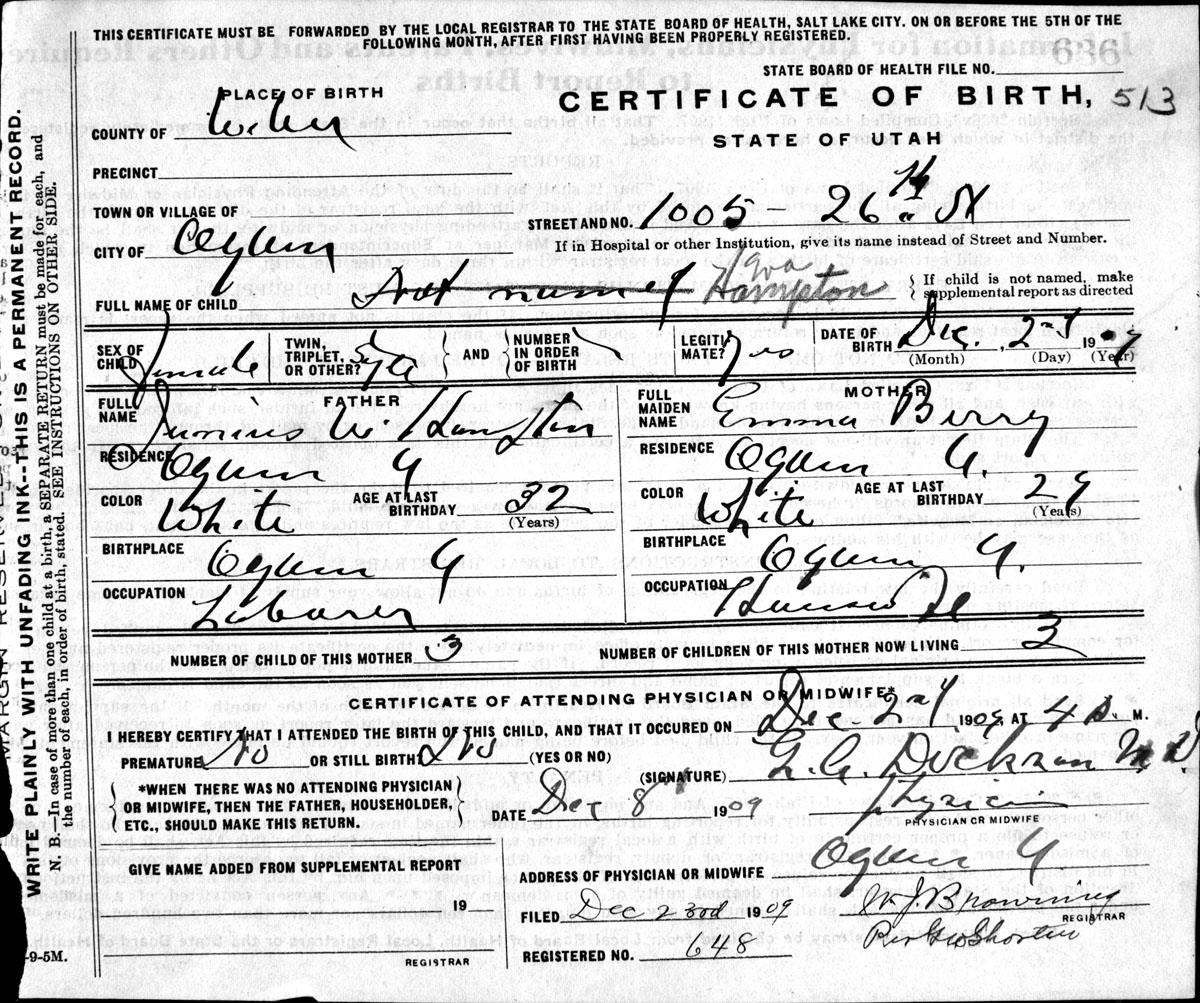 THIS CERTIFICATE MUST BE FORWARDED BY THE LOCAL REGISTRAR TO THE STATE BOARD OF HEALTH, SALT LAKE CITY. ON OR BEFORE THE 5TH OF THE
FOLLOWING MONTH, AFTER FIRST HAVING BEEN PROPERLY REGISTERED.
STATE BOARD OF HEALTH FILE NO.
PLACE OF BIRTH
CERTIFICATE OF BIRTH, 513
COUNTY OF Weber
STATE OF UTAH
PRECINCT
TOWN OR VILLAGE OF
STREET AND NO. 1005 26th St
CITY OF Ogden
If in Hospital or other Institution, give its name instead of Street and Number.
FULL NAME OF CHILD Not named Ava Hampton
If child is not named, make supplemental report as directed
SEX OF CHILD Female
TWIN, TRIPLET, OR OTHER?
AND NUMBER IN ORDER OF BIRTH
LEGITIMATE? Yes
DATE OF BIRTH Dec. 2nd 1909
(Month) (Day) (Year)
FATHER
FULL NAME Junius W. Hampton
RESIDENCE Ogden U
COLOR White AGE AT LAST BIRTHDAY 32 (Years)
BIRTHPLACE Ogden U
OCCUPATION Laborer
MOTHER
FULL MAIDEN NAME Emma Berry
RESIDENCE Ogden U.
COLOR White AGE AT LAST BIRTHDAY 29 (Years)
BIRTHPLACE Ogden U.
OCCUPATION
NUMBER OF CHILD OF THIS MOTHER 3
NUMBER OF CHILDREN OF THIS MOTHER NOW LIVING 3
CERTIFICATE OF ATTENDING PHYSICIAN OR MIDWIFE*
I HEREBY CERTIFY THAT I ATTENDED THE BIRTH OF THIS CHILD, AND THAT IT OCCURED ON Dec 2nd 1909, AT 4 M.
PREMATURE No OR STILL BIRTH No (YES OR NO)
(SIGNATURE) M.D.
*WHEN THERE WAS NO ATTENDING PHYSICIAN OR MIDWIFE, THEN THE FATHER, HOUSEHOLDER, ETC., SHOULD MAKE THIS RETURN.
DATE Dec 8th 1909 Physician
PHYSICIAN OR MIDWIFE
GIVE NAME ADDED FROM SUPPLEMENTAL REPORT
ADDRESS OF PHYSICIAN OR MIDWIFE Ogden U
19
FILED Dec 23rd 1909 W. J. Browning
REGISTRAR
REGISTERED NO. 648
REGISTRAR
-9-5M.
WRITE PLAINLY WITH UNFADING INK--THIS IS A PERMANENT RECORD.
B.—In case of more than one child at a birth, a SEPARATE RETURN must be made for each, and
the number of each, in order of birth, stated. SEE INSTRUCTIONS ON OTHER SIDE.